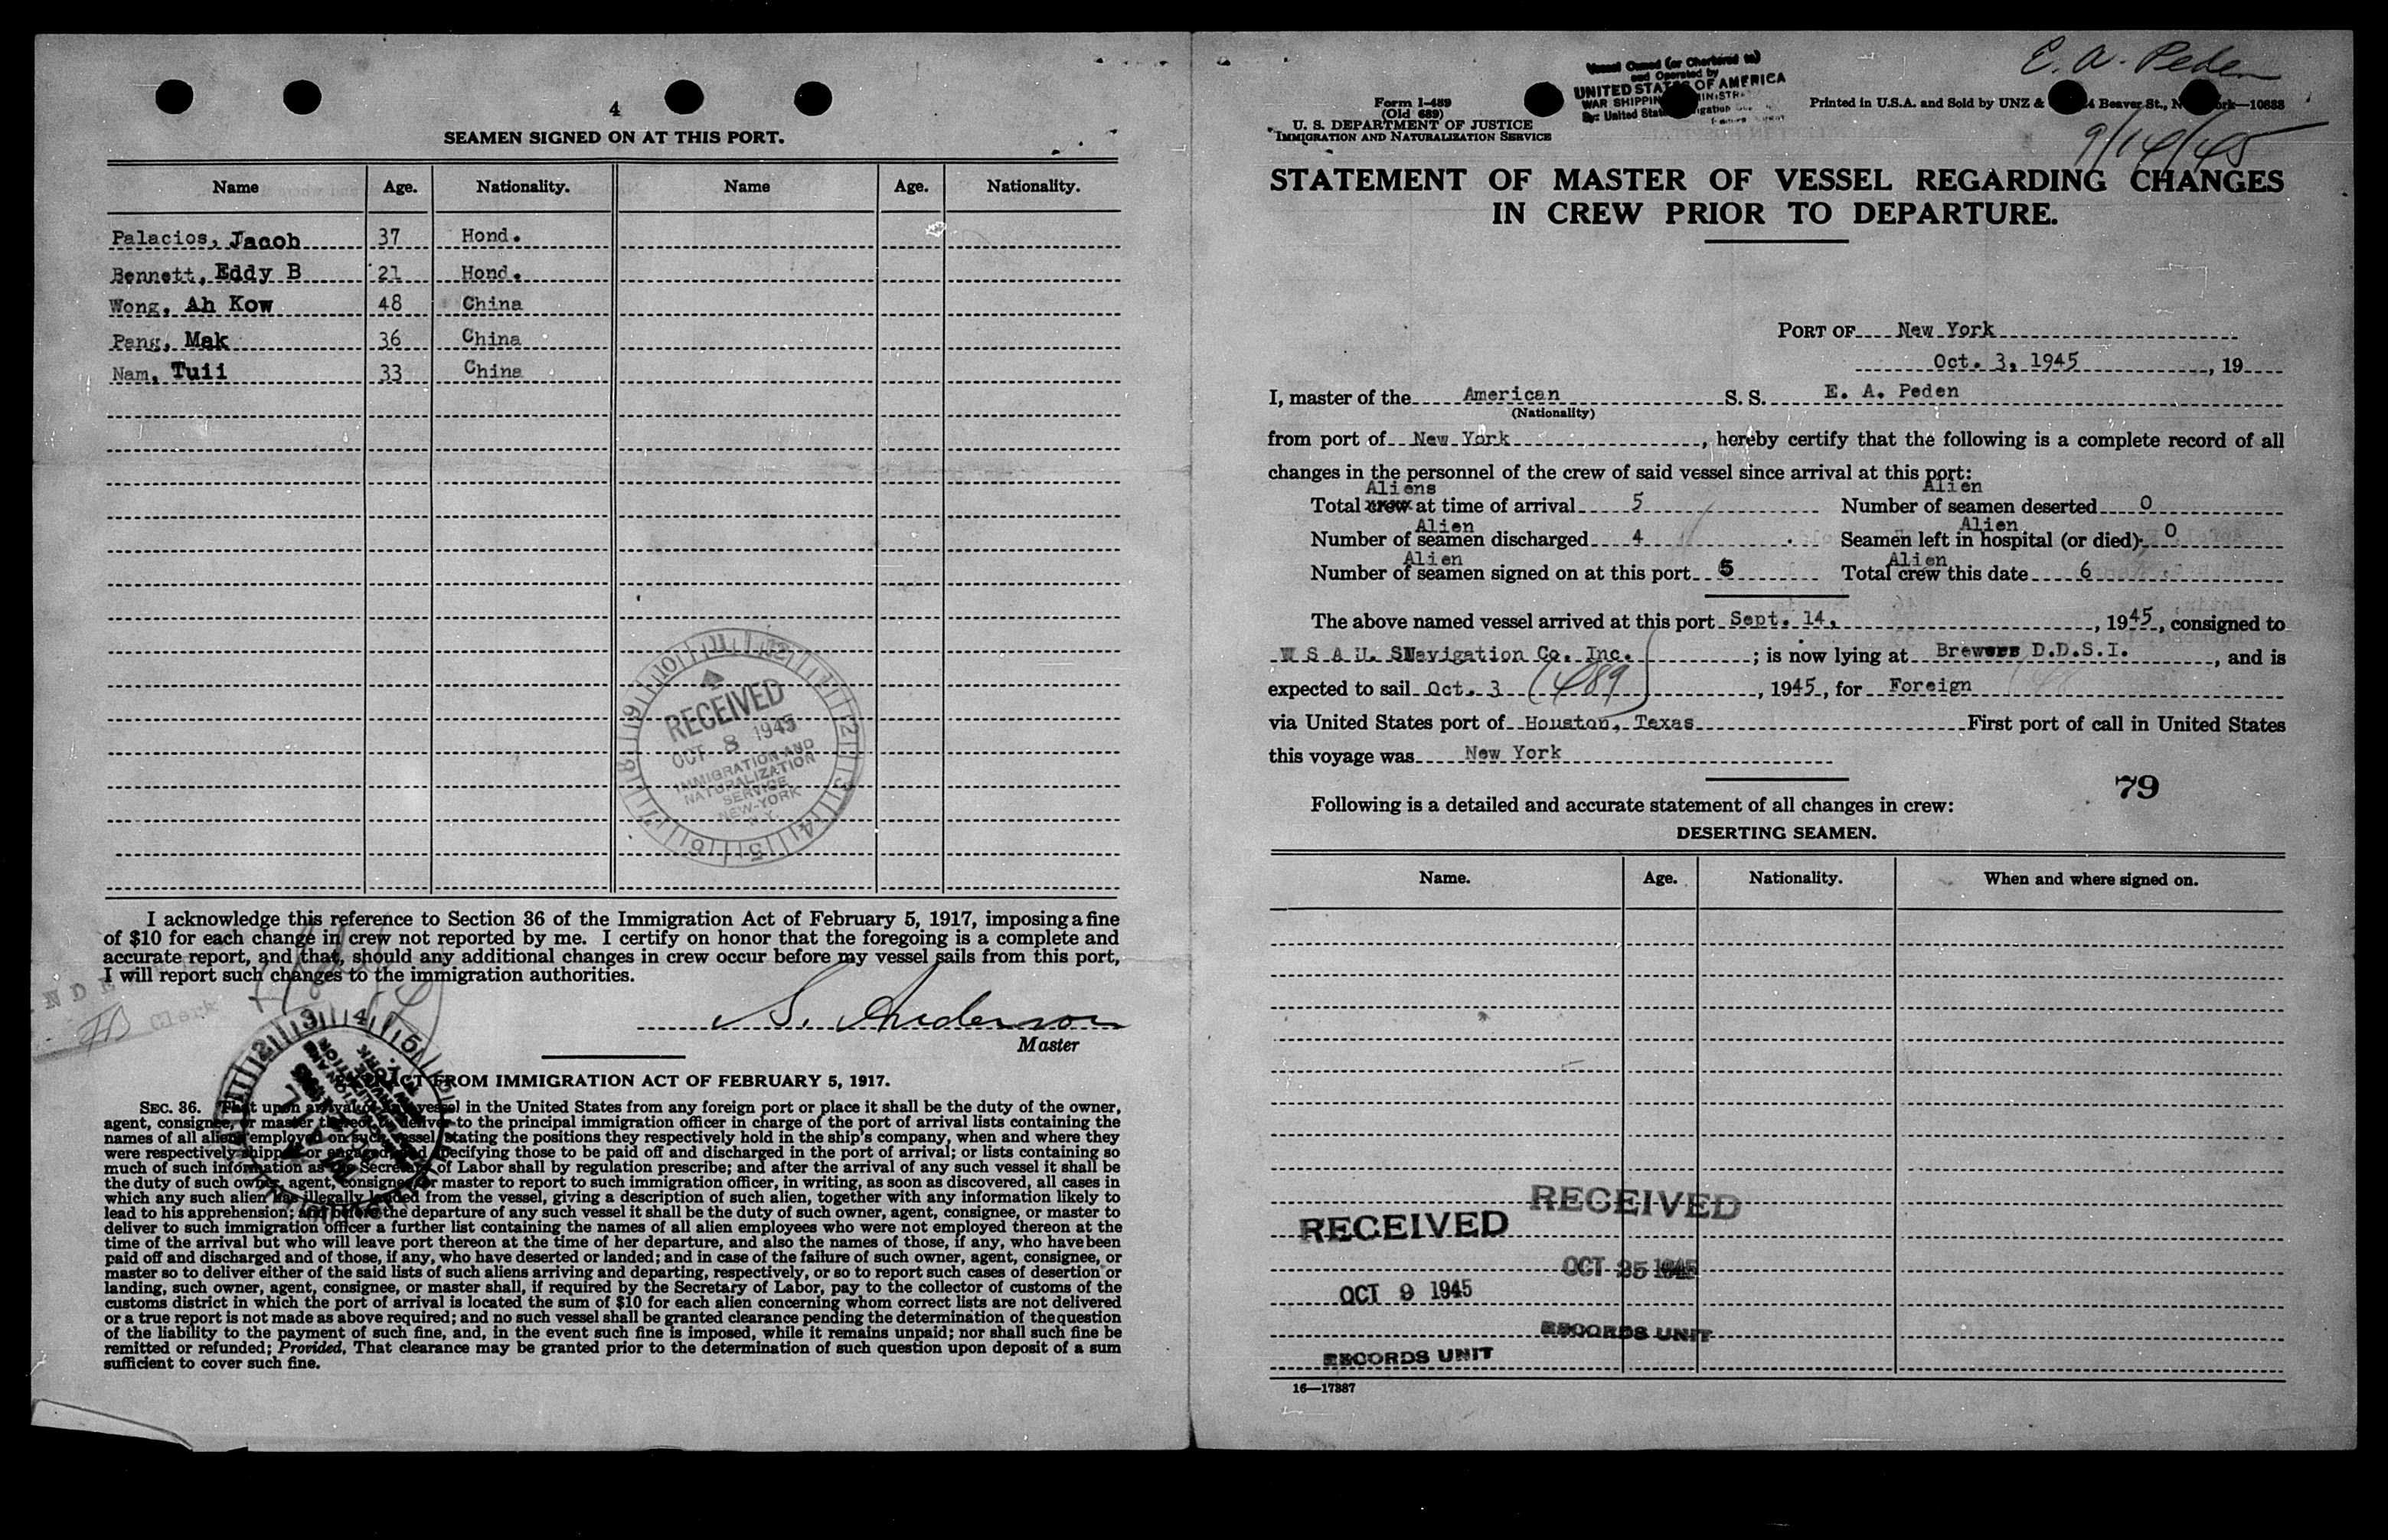 4
SEAMEN SIGNED ON AT THIS PORT.
Name Age. Nationality. Name Age. Nationality.
Palacios, Jacob 37 Hond.
Bennett, Eddy B 21 Hond.
Wong, Ah Kow 48 China
Pang, Mak 36 China
Nam, Tuii 33 China
RECEIVED
OCT 8 1945
IMMIGRATION AND
NATURALIZATION
SERVICE
NEW-YORK
N.Y.
I acknowledge this reference to Section 36 of the Immigration Act of February 5, 1917, imposing a fine
of $10 for each change in crew not reported by me. I certify on honor that the foregoing is a complete and
accurate report, and that, should any additional changes in crew occur before my vessel sails from this port,
I will report such changes to the immigration authorities.
Clerk
S. Anderson
Master
EXTRACT FROM IMMIGRATION ACT OF FEBRUARY 5, 1917.
SEC. 36. That upon arrival of any vessel in the United States from any foreign port or place it shall be the duty of the owner,
agent, consignee, or master thereof to deliver to the principal immigration officer in charge of the port of arrival lists containing the
names of all aliens employed on such vessel, stating the positions they respectively hold in the ship's company, when and where they
were respectively shipped or engaged, and specifying those to be paid off and discharged in the port of arrival; or lists containing so
much of such information as the Secretary of Labor shall by regulation prescribe; and after the arrival of any such vessel it shall be
the duty of such owner, agent, consignee, or master to report to such immigration officer, in writing, as soon as discovered, all cases in
which any such alien has illegally landed from the vessel, giving a description of such alien, together with any information likely to
lead to his apprehension; and before the departure of any such vessel it shall be the duty of such owner, agent, consignee, or master to
deliver to such immigration officer a further list containing the names of all alien employees who were not employed thereon at the
time of the arrival but who will leave port thereon at the time of her departure, and also the names of those, if any, who have been
paid off and discharged and of those, if any, who have deserted or landed; and in case of the failure of such owner, agent, consignee, or
master so to deliver either of the said lists of such aliens arriving and departing, respectively, or so to report such cases of desertion or
landing, such owner, agent, consignee, or master shall, if required by the Secretary of Labor, pay to the collector of customs of the
customs district in which the port of arrival is located the sum of $10 for each alien concerning whom correct lists are not delivered
or a true report is not made as above required; and no such vessel shall be granted clearance pending the determination of the question
of the liability to the payment of such fine, and, in the event such fine is imposed, while it remains unpaid; nor shall such fine be
remitted or refunded; Provided, That clearance may be granted prior to the determination of such question upon deposit of a sum
sufficient to cover such fine.
E. A. Peden
9/14/45
Form I-489
(Old 689)
U. S. DEPARTMENT OF JUSTICE
IMMIGRATION AND NATURALIZATION SERVICE
Vessel Owned (or Chartered to)
and Operated by
UNITED STATES OF AMERICA
WAR SHIPPING
By: United States
Printed in U.S.A. and Sold by UNZ & Beaver St., —10888
STATEMENT OF MASTER OF VESSEL REGARDING CHANGES
IN CREW PRIOR TO DEPARTURE.
PORT OF New York
Oct. 3, 1945, 19
I, master of the American S. S. E. A. Peden
(Nationality)
from port of New York, hereby certify that the following is a complete record of all
changes in the personnel of the crew of said vessel since arrival at this port:
Aliens Alien
Total crew at time of arrival 5 Number of seamen deserted 0
Alien Alien
Number of seamen discharged 4 Seamen left in hospital (or died) 0
Alien Alien
Number of seamen signed on at this port 5 Total crew this date 6
The above named vessel arrived at this port Sept. 14, , 1945, consigned to
W S A U. S Navigation Co. Inc. ; is now lying at Brewers D.D.S.I. , and is
expected to sail Oct. 3 (489) , 1945, for Foreign
via United States port of Houston, Texas First port of call in United States
this voyage was New York
79
Following is a detailed and accurate statement of all changes in crew:
DESERTING SEAMEN.
Name. Age. Nationality. When and where signed on.
RECEIVED
OCT 9 1945
RECORDS UNIT
RECEIVED
OCT 25 1945
RECORDS UNIT
16—17387